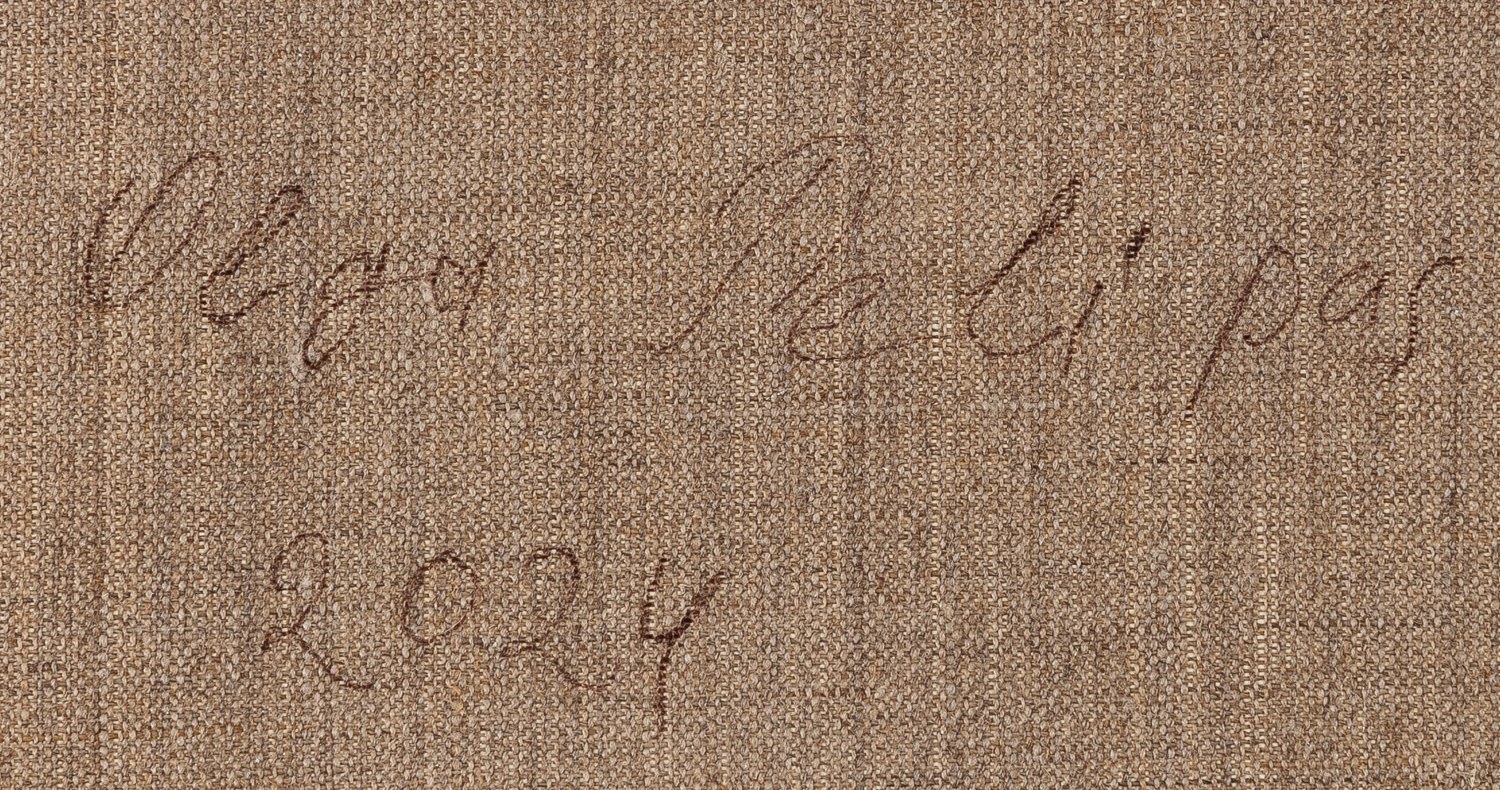 Olga Pelipas
2024